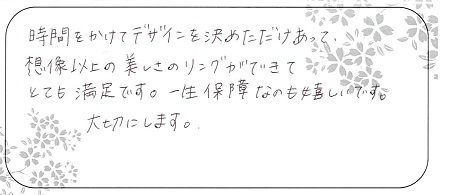 時間をかけてデザインを決めただけあって、
想像以上の美しさのリングができて
とても満足です。一生保障なのも嬉しいです。
大切にします。